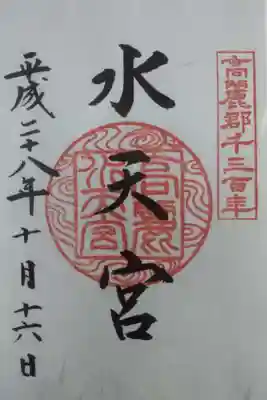 高麗郡千三百年
水天宮
高麗水天宮
平成二十八年十月十六日